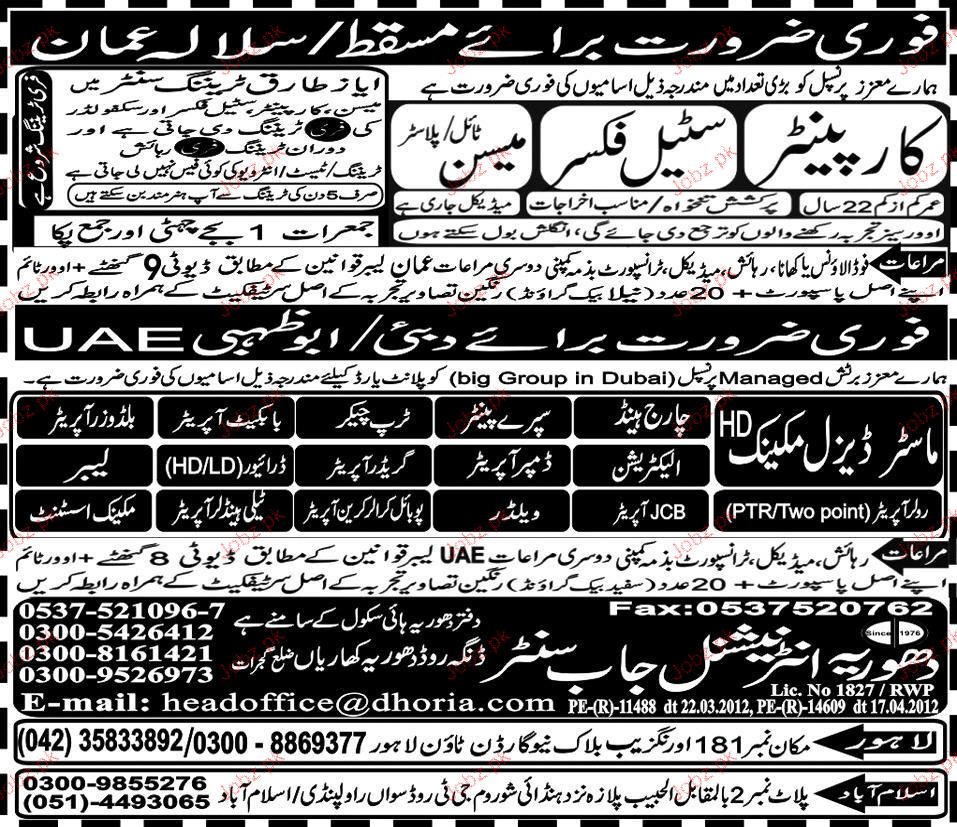 فوری ضرورت برائے مسقط/سلالہ عمان
ہمارے معزز پرنسپل کو بڑی تعداد میں مندرجہ ذیل اسامیوں کی فوری ضرورت ہے
کارپینٹر
سٹیل فکسر
ٹائل/پلاسٹر
میسن
عمر کم از کم 22 سال
پرکشش تنخواہ/مناسب اخراجات
میڈیکل جاری ہے
اوورسیز تجربہ رکھنے والوں کو ترجیح دی جائے گی، انگلش بول سکتے ہوں
فری ٹریننگ شروع ہے
ایاز طارق ٹریننگ سنٹر میں
میسن، کارپینٹر، سٹیل فکسر اور سکفولڈر
کی فری ٹریننگ دی جاتی ہے اور
دوران ٹریننگ فری رہائش
ٹریننگ/ٹیسٹ/انٹرویو کی کوئی فیس نہیں لی جاتی ہے
صرف 5 دن کی ٹریننگ سے آپ ہنر مند بن سکتے ہیں
جمعرات 1 بجے چھٹی اور جمع پکا
مراعات فوڈ الاؤنس یا کھانا، رہائش، میڈیکل، ٹرانسپورٹ بذمہ کمپنی دوسری مراعات عمان لیبر قوانین کے مطابق ڈیوٹی 9 گھنٹے + اوور ٹائم
اپنے اصل پاسپورٹ + 20 عدد (نیلا بیک گراؤنڈ) رنگین تصاویر تجربہ کے اصل سرٹیفکیٹ کے ہمراہ رابطہ کریں
فوری ضرورت برائے دبئی/ابوظہبی UAE
ہمارے معزز برٹش Managed پرنسپل (big Group in Dubai) کو پلانٹ یارڈ کیلئے مندرجہ ذیل اسامیوں کی فوری ضرورت ہے۔
ماسٹر ڈیزل مکینک HD
چارج ہینڈ
سپرے پینٹر
ٹرپ چیکر
بابکیٹ آپریٹر
بلڈوزر آپریٹر
الیکٹریشن
ڈمپر آپریٹر
گریڈر آپریٹر
ڈرائیور (HD/LD)
لیبر
رولر آپریٹر (PTR/Two point)
JCB آپریٹر
ویلڈر
پوہائل کرالر کرین آپریٹر
ٹیلی ہینڈلر آپریٹر
مکینک اسسٹنٹ
مراعات رہائش، میڈیکل، ٹرانسپورٹ بذمہ کمپنی دوسری مراعات UAE لیبر قوانین کے مطابق ڈیوٹی 8 گھنٹے + اوور ٹائم
اپنے اصل پاسپورٹ + 20 عدد (سفید بیک گراؤنڈ) رنگین تصاویر تجربہ کے اصل سرٹیفکیٹ کے ہمراہ رابطہ کریں
Fax:0537520762
Since 1976
دھوریہ انٹرنیشنل جاب سنٹر
دفتر دھوریہ ہائی سکول کے سامنے ہے
ڈنگہ روڈ دھوریہ کھاریاں ضلع گجرات
0537-521096-7
0300-5426412
0300-8161421
0300-9526973
Lic. No 1827 / RWP
E-mail: headoffice@dhoria.com
PE-(R)-11488 dt 22.03.2012, PE-(R)-14609 dt 17.04.2012
لاہور مکان نمبر 181 اورنگزیب بلاک نیو گارڈن ٹاؤن لاہور 0300 - 8869377/(042) 35833892
اسلام آباد پلاٹ نمبر 2 بالمقابل الحبیب پلازہ نزد ہنڈائی شوروم جی ٹی روڈ سواں راولپنڈی/اسلام آباد
0300-9855276
(051)-4493065